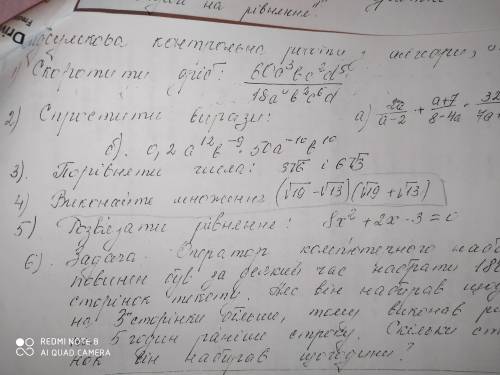 на рівняння"
контрольна
1) Скоротити дріб: 60a³bc²d⁵ / 18a⁴b³c⁶d
2) Спростити вирази: а) 2a/(a-2) + (a+7)/(8-4a) · 32
б). 0,2 a¹² b⁻⁹ · 50a⁻¹⁰ b¹⁰
3). Порівняти числа: 3√6 і 6√3
4) Виконайте множення (√19 - √13)(√19 + √13)
5) Розв'язати рівняння: 8x² + 2x - 3 = 0
6). Задача. Оператор комп'ютерного наб
повинен був за деякий час набрати 18
сторінок тексту. він набирав щод
на 3 сторінки більше, тому виконав
5 годин раніше строку. Скільки ст
нок він набирав щогодини?
REDMI NOTE 8
AI QUAD CAMERA